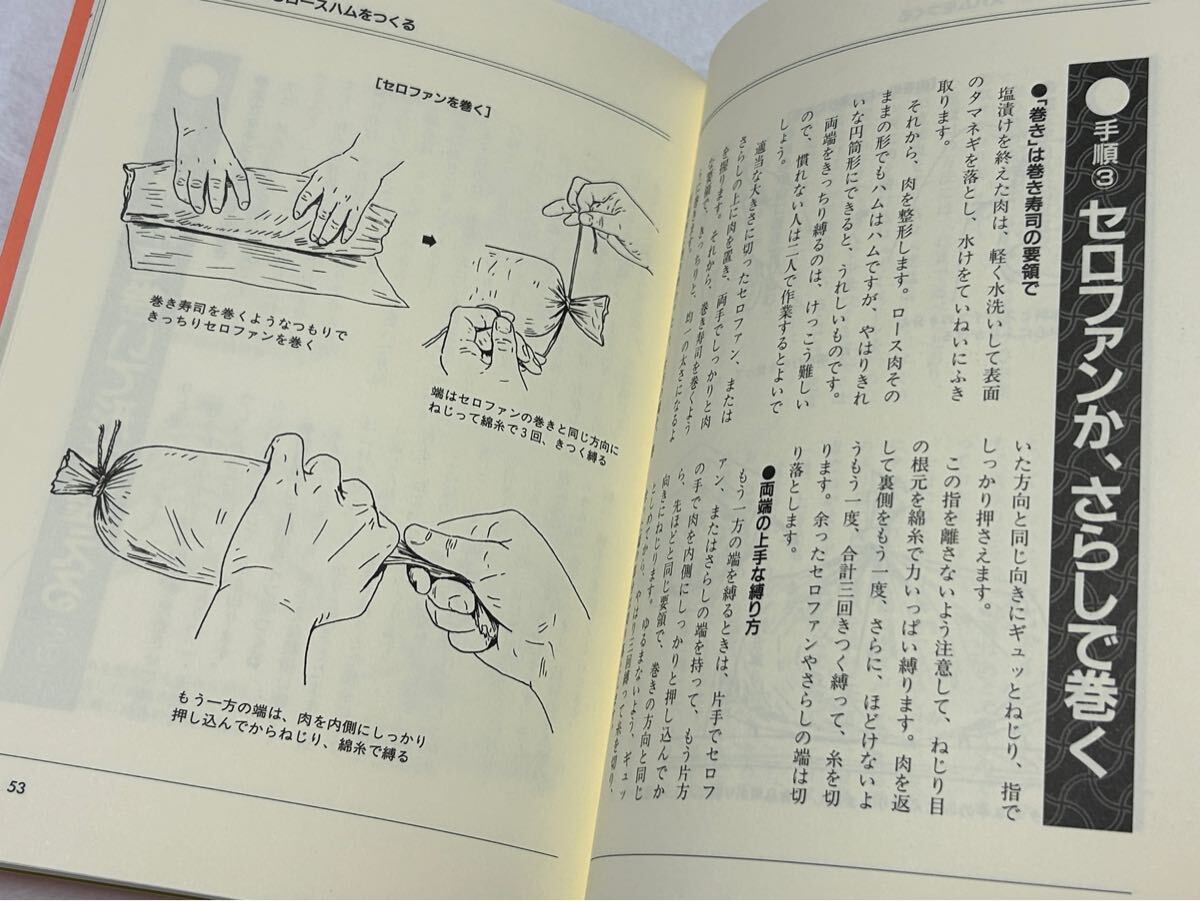 手順③セロファンか、さらしで巻く
●「巻き」は巻き寿司の要領で
塩漬けを終えた肉は、軽く水洗いして表面
のタマネギを落とし、水けをていねいにふき
取ります。
それから、肉を整形します。ロース肉その
ままの形でもハムはハムですが、やはりきれ
いな円筒形にできると、うれしいものです。
両端をきっちり縛るのは、けっこう難しい
ので、慣れない人は二人で作業するとよいで
しょう。
適当な大きさに切ったセロファン、または
さらしの上に肉を置き、両手でしっかりと肉
を握ります。それから、巻き寿司を巻くよう
な要領で、きっちりと、均一の太さになるよ
いた方向と同じ向きにギュッとねじり、指で
しっかり押さえます。
この指を離さないよう注意して、ねじり目
の根元を綿糸で力いっぱい縛ります。肉を返
して裏側をもう一度、さらに、ほどけないよ
うもう一度、合計三回きつく縛って、糸を切
ります。余ったセロファンやさらしの端は切
り落とします。
●両端の上手な縛り方
もう一方の端を縛るときは、片手でセロフ
ァン、またはさらしの端を持って、もう片方
の手で肉を内側にしっかりと押し込んでか
ら、先ほどと同じ要領で、巻きの方向と同じ
向きにねじります。ゆるまないよう、ギュッ
としめてから、やはり三回縛って糸を切り、
ロースハムをつくる
[セロファンを巻く]
巻き寿司を巻くようなつもりで
きっちりセロファンを巻く
端はセロファンの巻きと同じ方向に
ねじって綿糸で3回、きつく縛る
もう一方の端は、肉を内側にしっかり
押し込んでからねじり、綿糸で縛る
53